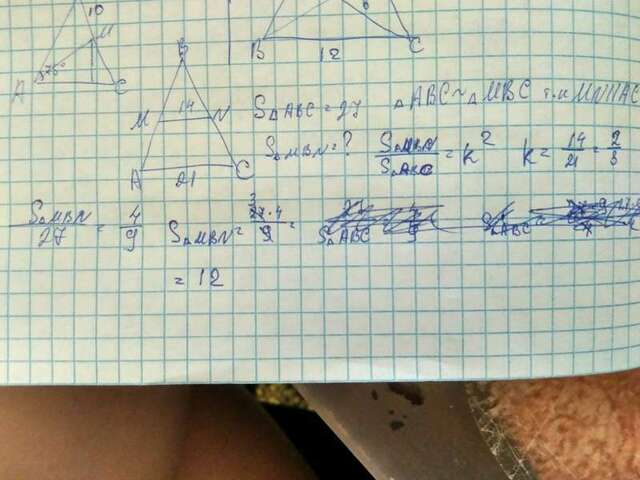 10
M
A 75° C
6
B 12 C
B
M 14 N
A 21 C
S△ABC = 27
△ABC ~ △MBC т.к MN||AC
S△MBN = ?
S△MBN / S△ABC = k² k = 14/21 = 2/3
S△MBN / 27 = 4/9 S△MBN = 27·4 / 9 =
3
S△ABC
S△ABC
= 12